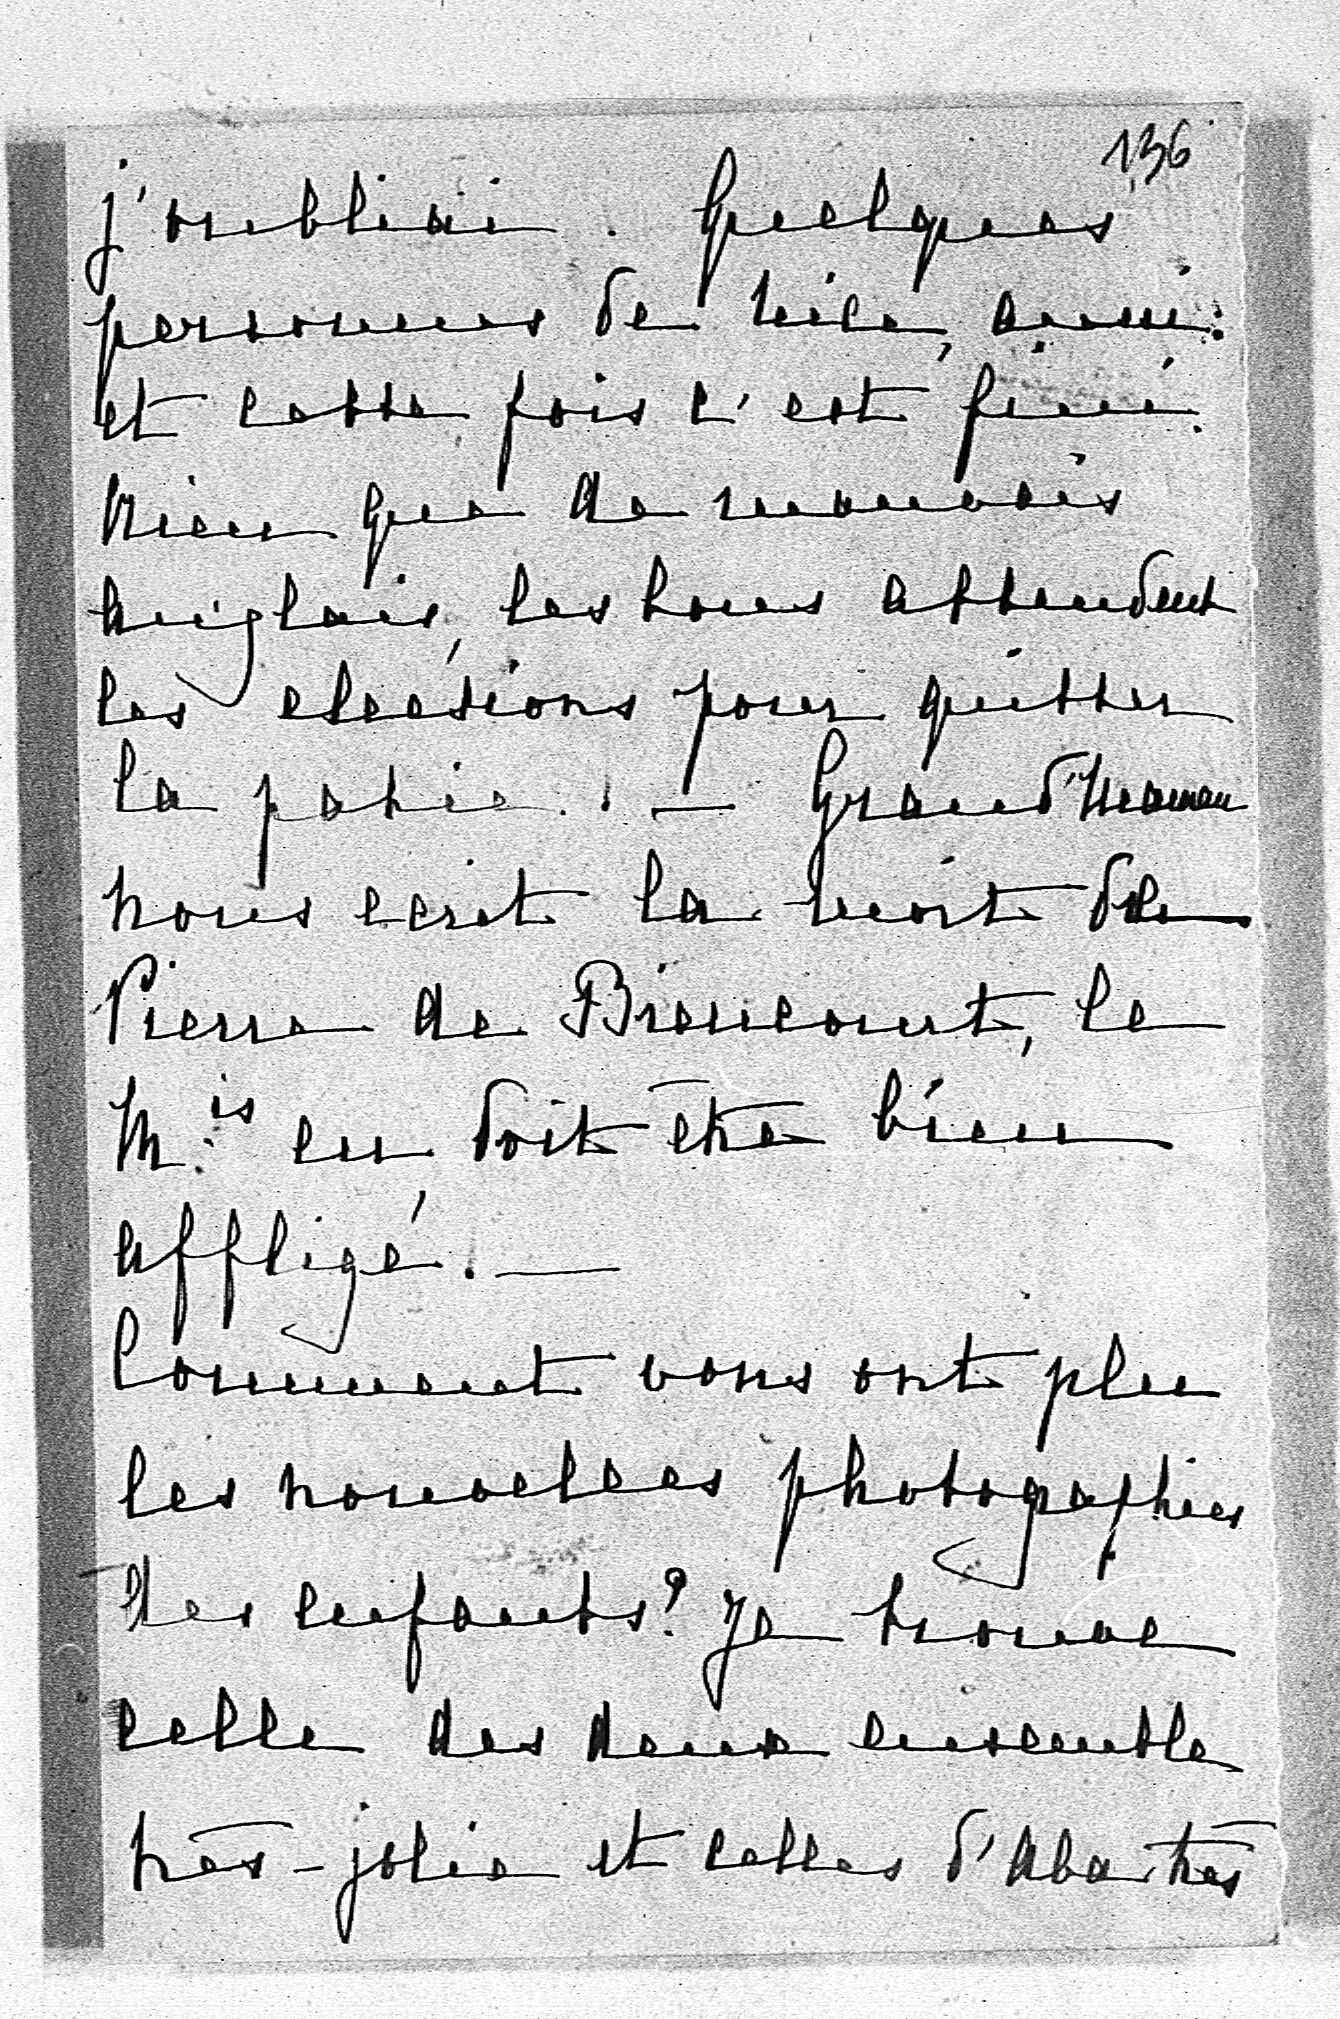 136
j'oubliai. Quelques
personnes de Nice, aussi:
et cette fois c'est fini.
Rien que de mauvais
Anglais, les bons attendent
les elections pour quitter
la patrie. ! — Grand'Maman
nous ecrit la mort de
Pierre de Biencourt, le
M.is en doit être bien
affligé. —
Comment vous ont plu
les nouvelles photographies
des enfants? Je trouve
celle des deux ensemble
très-jolie et celles d'Aba très